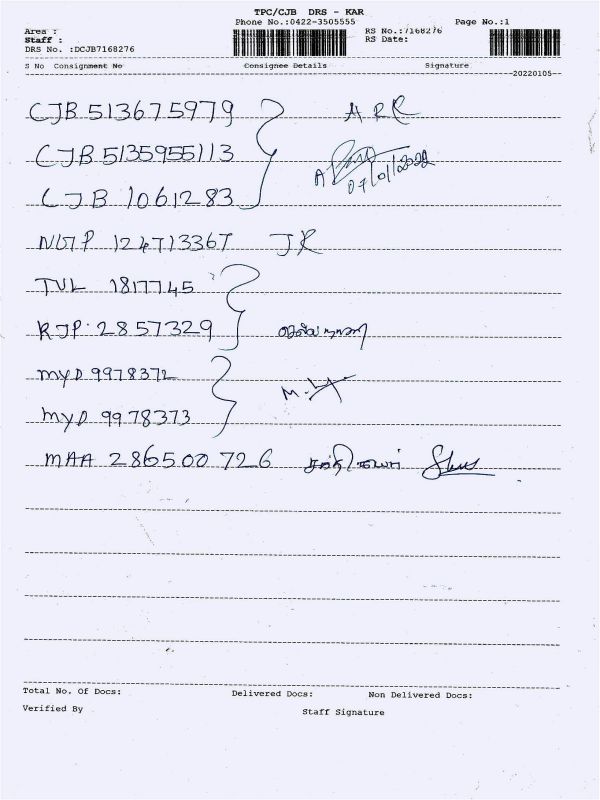 TPC/CJB DRS - KAR
Phone No.:0422-3505555
Page No.:1
Area :
Staff :
DRS No. :DCJB7168276
RS No.:7168276
RS Date:
S No Consignment No Consignee Details Signature
--20220105--
CJB 513675979 ARR
CJB 5135955113
A 07/01/2022
CJB 1061283
NGP 124713367 JR
TVL 1817745
RJP 2857329
MYD 9978372
MYD 9978373
MAA 286500726
Total No. Of Docs: Delivered Docs: Non Delivered Docs:
Verified By Staff Signature